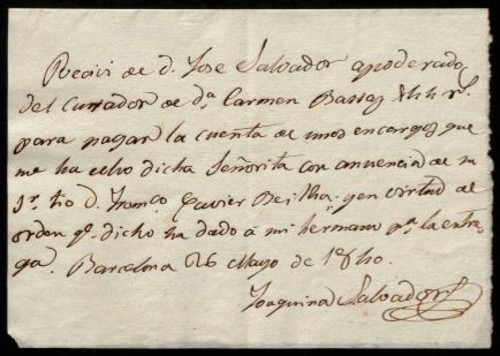 Recivi de d. Jose Salvador apoderado
del Curador de d.ª Carmen Bassas r.s
para pagar la cuenta de unos encargos que
me ha echo dicha Señorita con anuencia de su
S.r tio d. Franco Xavier y en virtud de
orden q.e dicho ha dado á mi hermano p.a la entre-
ga. Barcelona 26 Mayo de 1840.
Joaquina Salvador